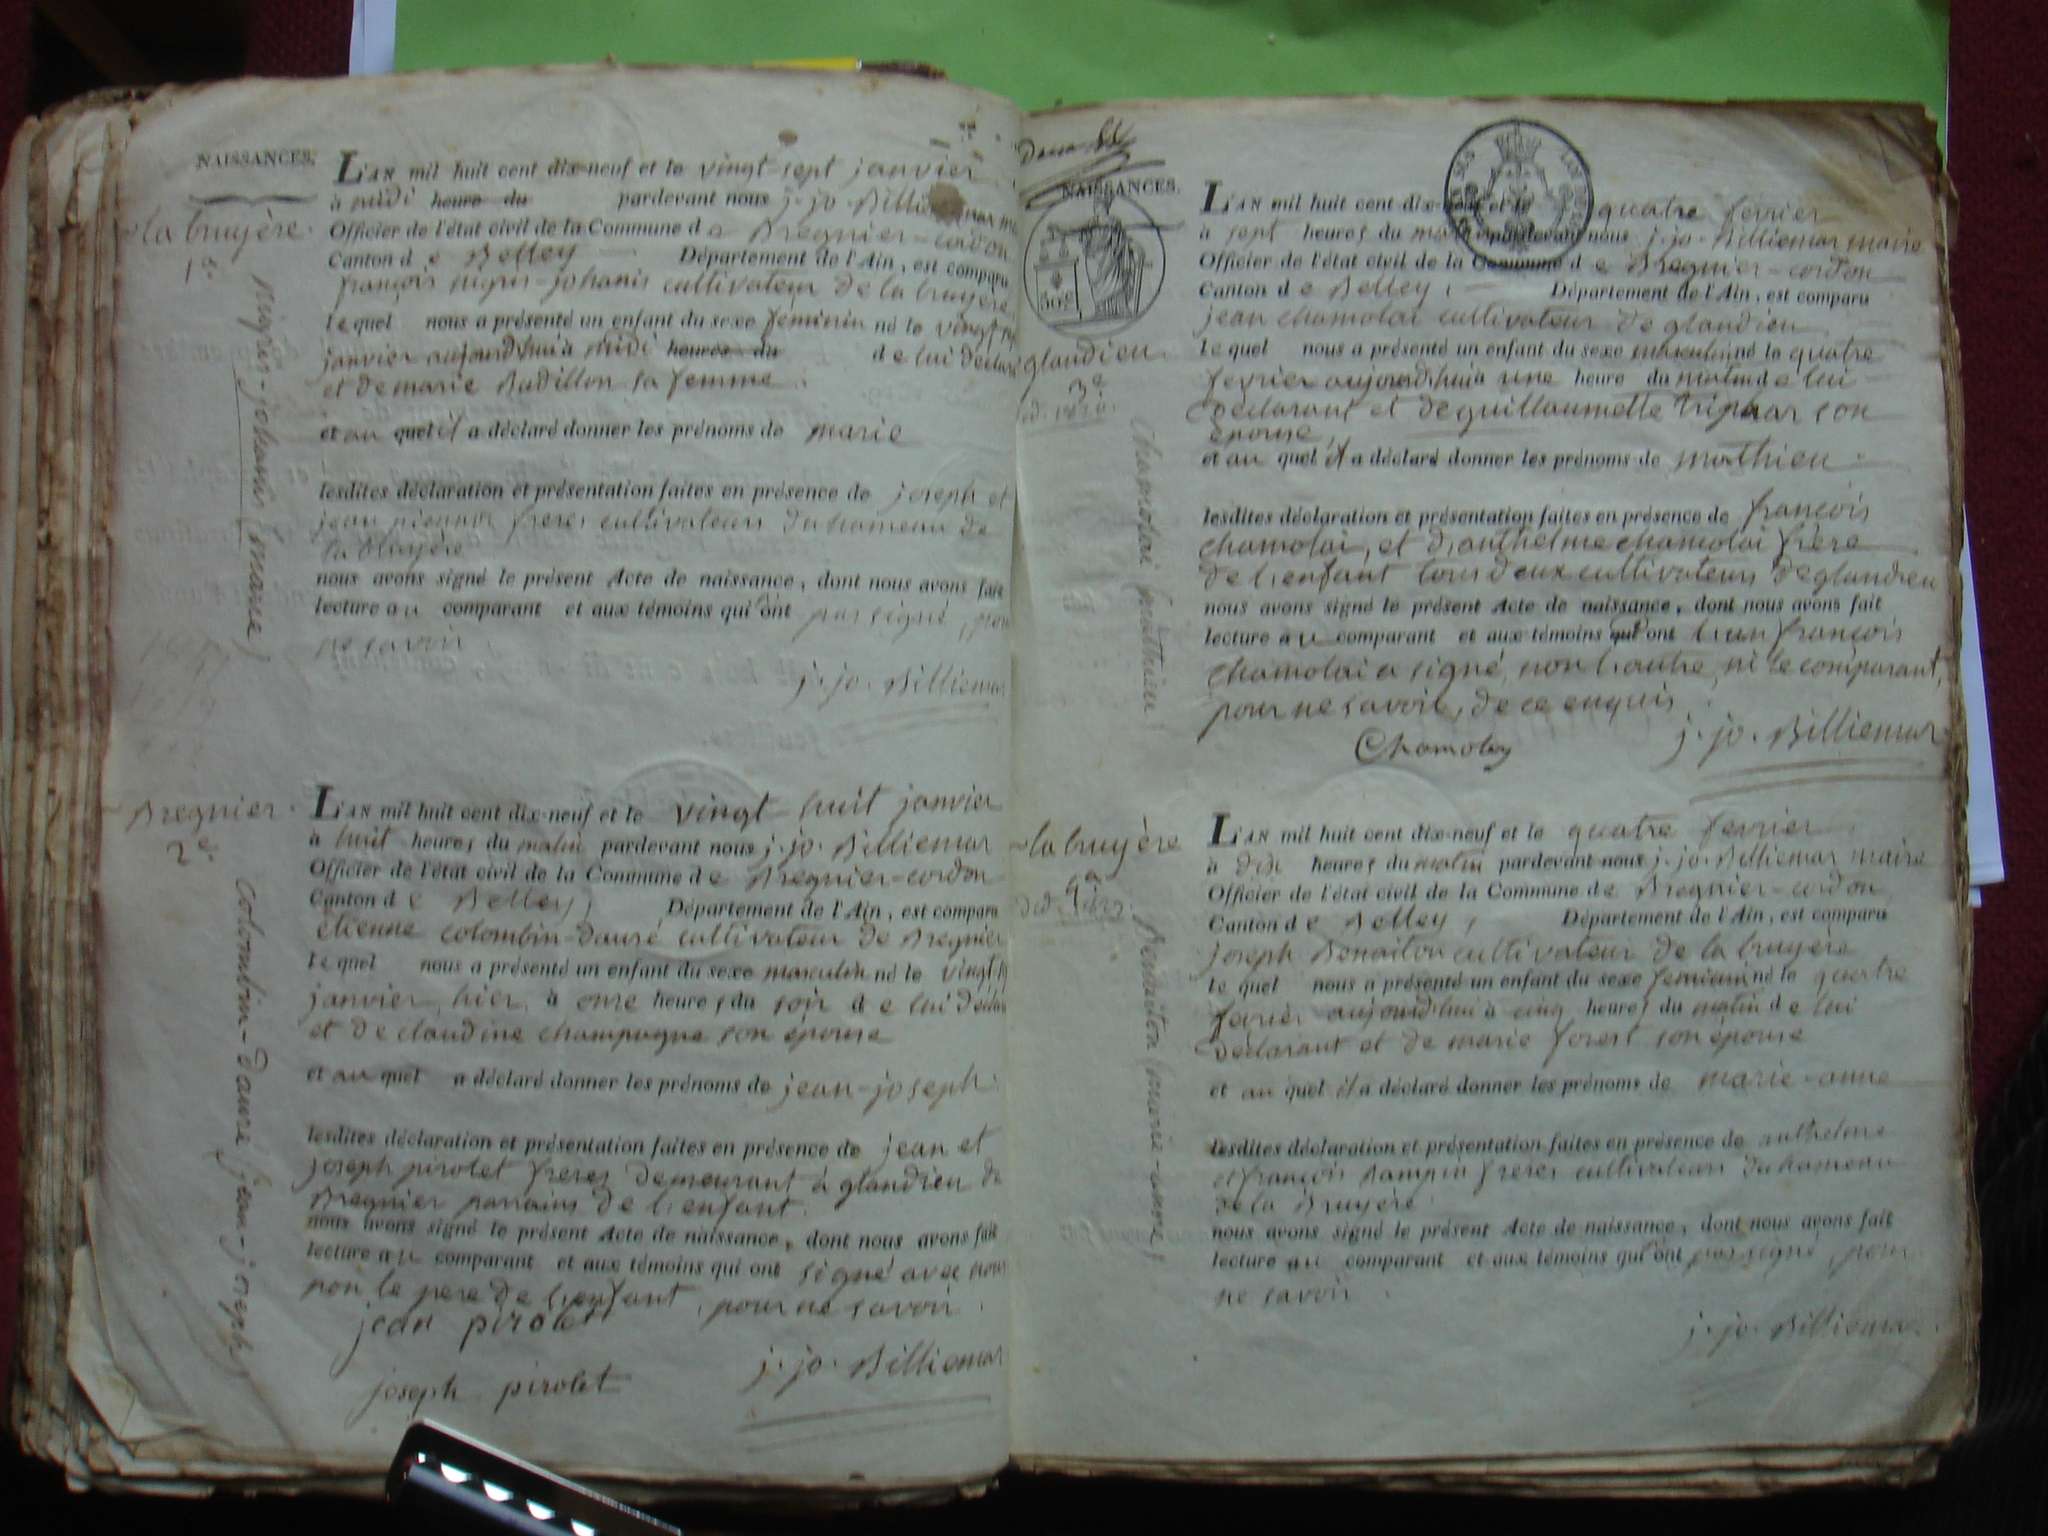 NAISSANCES.
la bruyère
1er
nigris-johanis (marie)
L'AN mil huit cent dix-neuf et le vingt sept janvier
à midi heure du pardevant nous j. jo. Billiemar
Officier de l'état civil de la Commune de Bregnier-cordon
Canton de Belley Département de l'Ain, est comparu
françois nigris-johanis cultivateur de la bruyère
lequel nous a présenté un enfant du sexe feminin né le vingt sept
janvier aujourdhui à midi heures du de lui déclarant
et de marie Budillon sa femme.
et au quel il a déclaré donner les prénoms de marie
lesdites déclaration et présentation faites en présence de joseph et
jean frères cultivateurs du hameau de
la bruyère
nous avons signé le présent Acte de naissance, dont nous avons fait
lecture au comparant et aux témoins qui n'ont pas signé, pour
ne savoir
j. jo. Billiemar
Bregnier.
2e
colombin-dauré (jean-joseph)
L'AN mil huit cent dix-neuf et le vingt huit janvier
à huit heures du matin pardevant nous j. jo. Billiemar
Officier de l'état civil de la Commune de Bregnier-cordon
Canton de Belley, Département de l'Ain, est comparu
étienne colombin-dauré cultivateur de Bregnier
lequel nous a présenté un enfant du sexe masculin né le vingt sept
janvier, hier, à onze heures du soir de lui déclarant
et de claudine champagne son épouse
et au quel a déclaré donner les prénoms de jean-joseph.
lesdites déclaration et présentation faites en présence de jean et
joseph pirolet frères demeurant à glandieu de
Bregnier parrains de l'enfant.
nous avons signé le présent Acte de naissance, dont nous avons fait
lecture au comparant et aux témoins qui ont signé avec nous
non le père de l'enfant, pour ne savoir.
jean pirolet
joseph pirolet
j. jo. Billiemar
NAISSANCES.
50c
glandieu
3e
chamolai (mathieu)
L'AN mil huit cent dix-neuf et le quatre fevrier
à sept heures du matin pardevant nous j. jo. Billiemar maire
Officier de l'état civil de la Commune de Bregnier-cordon
Canton de Belley, Département de l'Ain, est comparu
jean chamolai cultivateur de glandieu
lequel nous a présenté un enfant du sexe masculin né le quatre
fevrier aujourdhui à une heure du matin de lui
déclarant et de guillaumette son
épouse
et au quel il a déclaré donner les prénoms de mathieu.
lesdites déclaration et présentation faites en présence de françois
chamolai, et d'anthelme chamolai frère
de l'enfant tous deux cultivateurs de glandieu
nous avons signé le présent Acte de naissance, dont nous avons fait
lecture au comparant et aux témoins qui ont l'un françois
chamolai a signé, non l'autre, ni le comparant,
pour ne savoir, de ce enquis
Chamolay
j. jo. Billiemar
la bruyère
4e
Benaiton (marie-anne)
L'AN mil huit cent dix-neuf et le quatre fevrier
à dix heures du matin pardevant nous j. jo. Billiemar maire
Officier de l'état civil de la Commune de Bregnier-cordon
Canton de Belley, Département de l'Ain, est comparu
joseph Benaiton cultivateur de la bruyère
lequel nous a présenté un enfant du sexe feminin né le quatre
fevrier aujourdhui à cinq heures du matin de lui
déclarant et de marie forest son épouse
et au quel il a déclaré donner les prénoms de marie-anne
lesdites déclaration et présentation faites en présence de anthelme
et françois frères cultivateurs du hameau
de la Bruyère.
nous avons signé le présent Acte de naissance, dont nous avons fait
lecture au comparant et aux témoins qui n'ont pas signé, pour
ne savoir.
j. jo. Billiemar